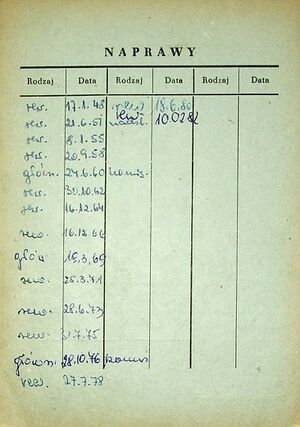 NAPRAWY
Rodzaj Data Rodzaj Data Rodzaj Data
rew. 17.1.48 18.6.80
rew. 21.6.51 10.02.82
rew. 8.1.55
rew. 20.9.58
główn. 24.6.60 komis.
rew. 30.10.62
rew. 16.12.64
rew. 16.12.66
główn. 15.3.69
rew. 25.3.71
rew. 28.6.73
rew. 31.7.75
główn. 28.10.76 komis
rew. 27.7.78